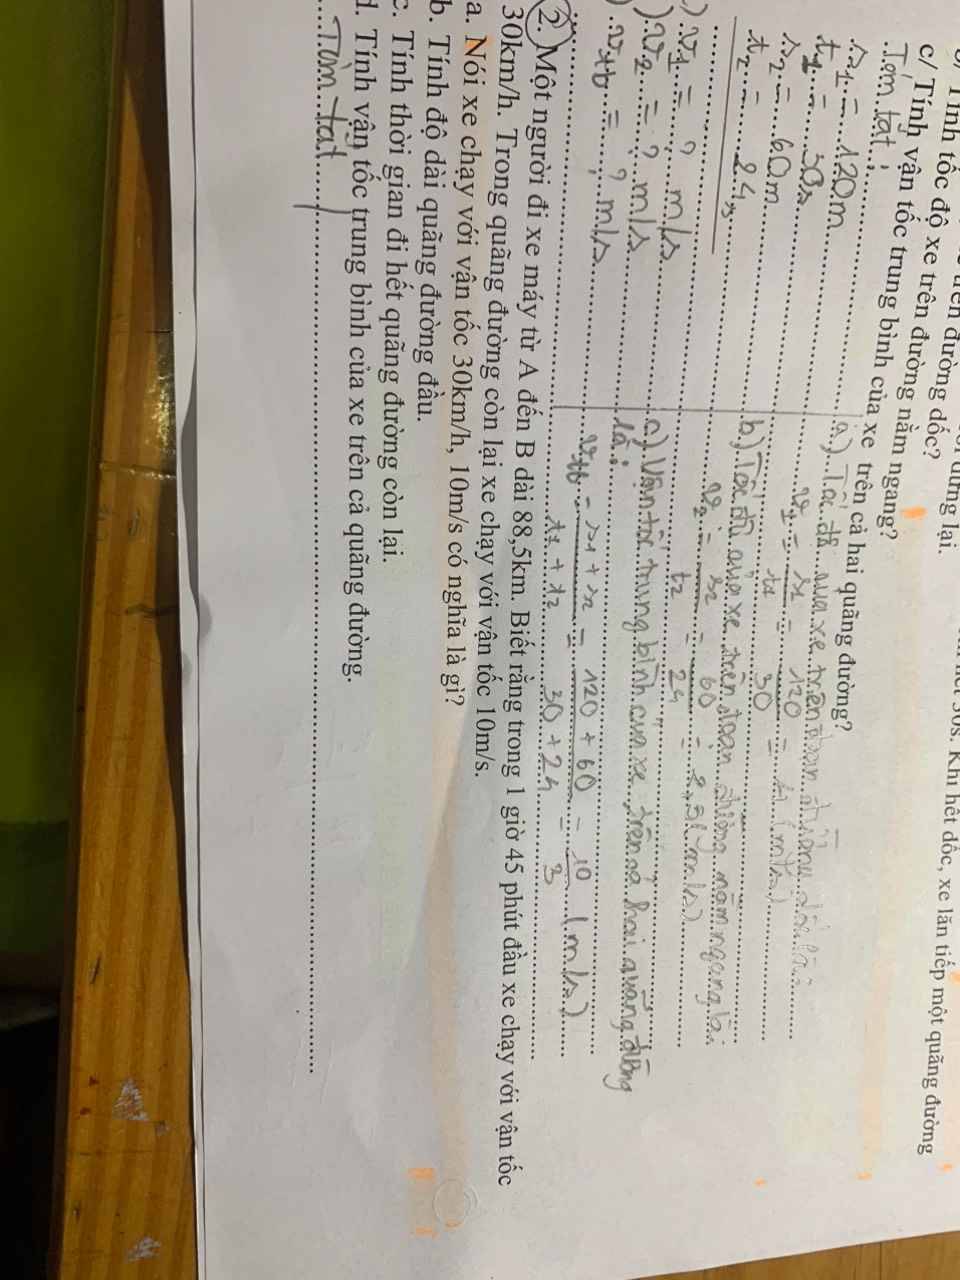 b/ Tính tốc độ xe trên đường dốc?
c/ Tính vận tốc trung bình của xe trên cả hai quãng đường?
hết 30s. Khi hết dốc, xe lăn tiếp một quãng đường
dừng lại.
đường nằm ngang?
Tóm tắt:
s1 = 120m
t1 = 30s
s2 = 60m
t2 = 24s
v1 = ? m/s
v2 = ? m/s
vtb = ? m/s
a) Tốc độ của xe trên đoạn đường dốc là:
v1 = s1 = 120 = 4 (m/s)
t1 30
b) Tốc độ của xe trên đoạn đường nằm ngang là:
v2 = s2 = 60 = 2,5 (m/s)
t2 24
c) Vận tốc trung bình của xe trên cả hai quãng đường
là:
vtb = s1 + s2 = 120 + 60 = 10 (m/s)
t1 + t2 30 + 24 3
2. Một người đi xe máy từ A đến B dài 88,5km. Biết rằng trong 1 giờ 45 phút đầu xe chạy với vận tốc
30km/h. Trong quãng đường còn lại xe chạy với vận tốc 10m/s.
a. Nói xe chạy với vận tốc 30km/h, 10m/s có nghĩa là gì?
b. Tính độ dài quãng đường đầu.
c. Tính thời gian đi hết quãng đường còn lại.
d. Tính vận tốc trung bình của xe trên cả quãng đường.
Tóm tắt